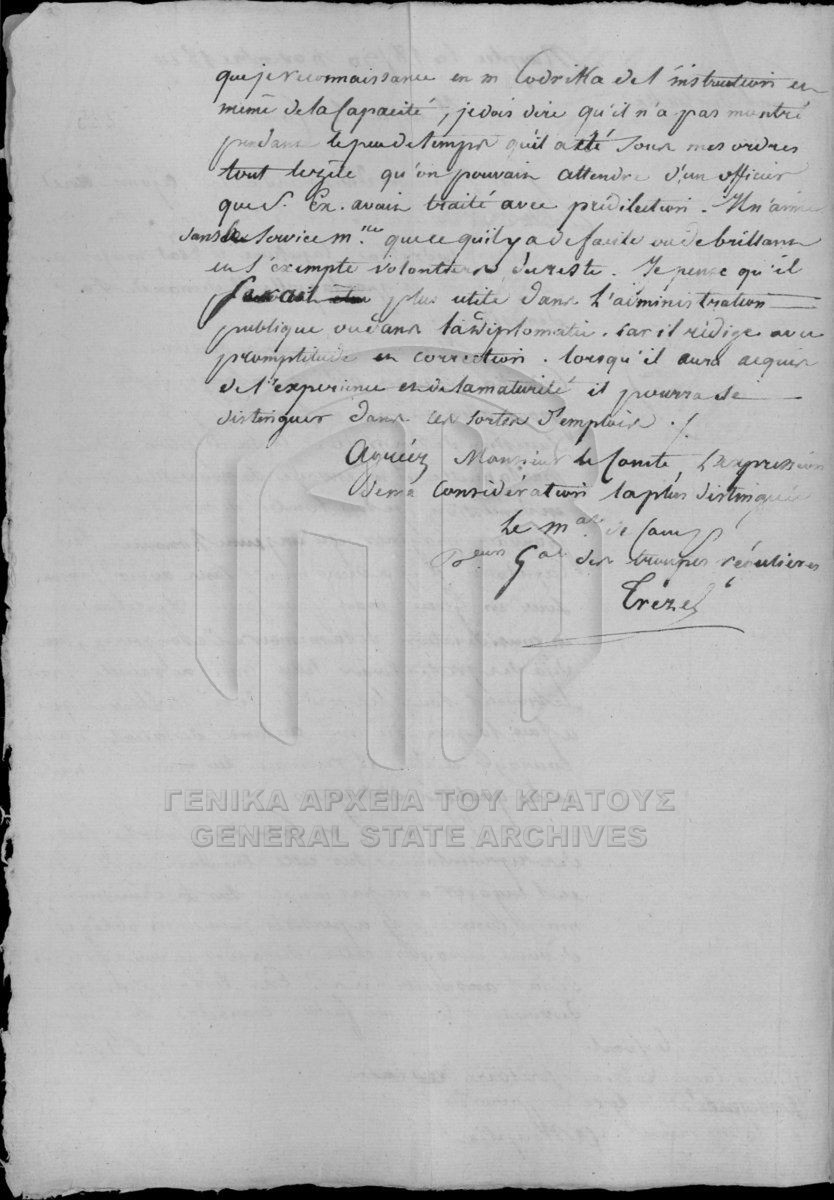 que je reconnaissance en m Codrika de l'instruction et
même de la capacité, je dois dire qu'il n'a pas montré
pendant le peu de temps qu'il a été sous mes ordres
tout le zèle qu'on pouvait attendre d'un officier
que S. Ex. avait traité avec prédilection. Il n'aime
dans le service m.re que ce qu'il y a de facile ou de brillant
et s'exempte volontiers du reste. Je pense qu'il
serait plus utile dans l'administration
publique ou dans la diplomatie. car il rédige avec
promptitude et correction. lorsqu'il aura acquis
de l'expérience et de la maturité il pourra se
distinguer dans ces sortes d'emplois ./.
Agréez Monsieur le Comte, l'expression
de ma considération la plus distinguée
Le m.al de Camp
G.al des troupes régulières
Trézel
ΓΕΝΙΚΑ ΑΡΧΕΙΑ ΤΟΥ ΚΡΑΤΟΥΣ
GENERAL STATE ARCHIVES